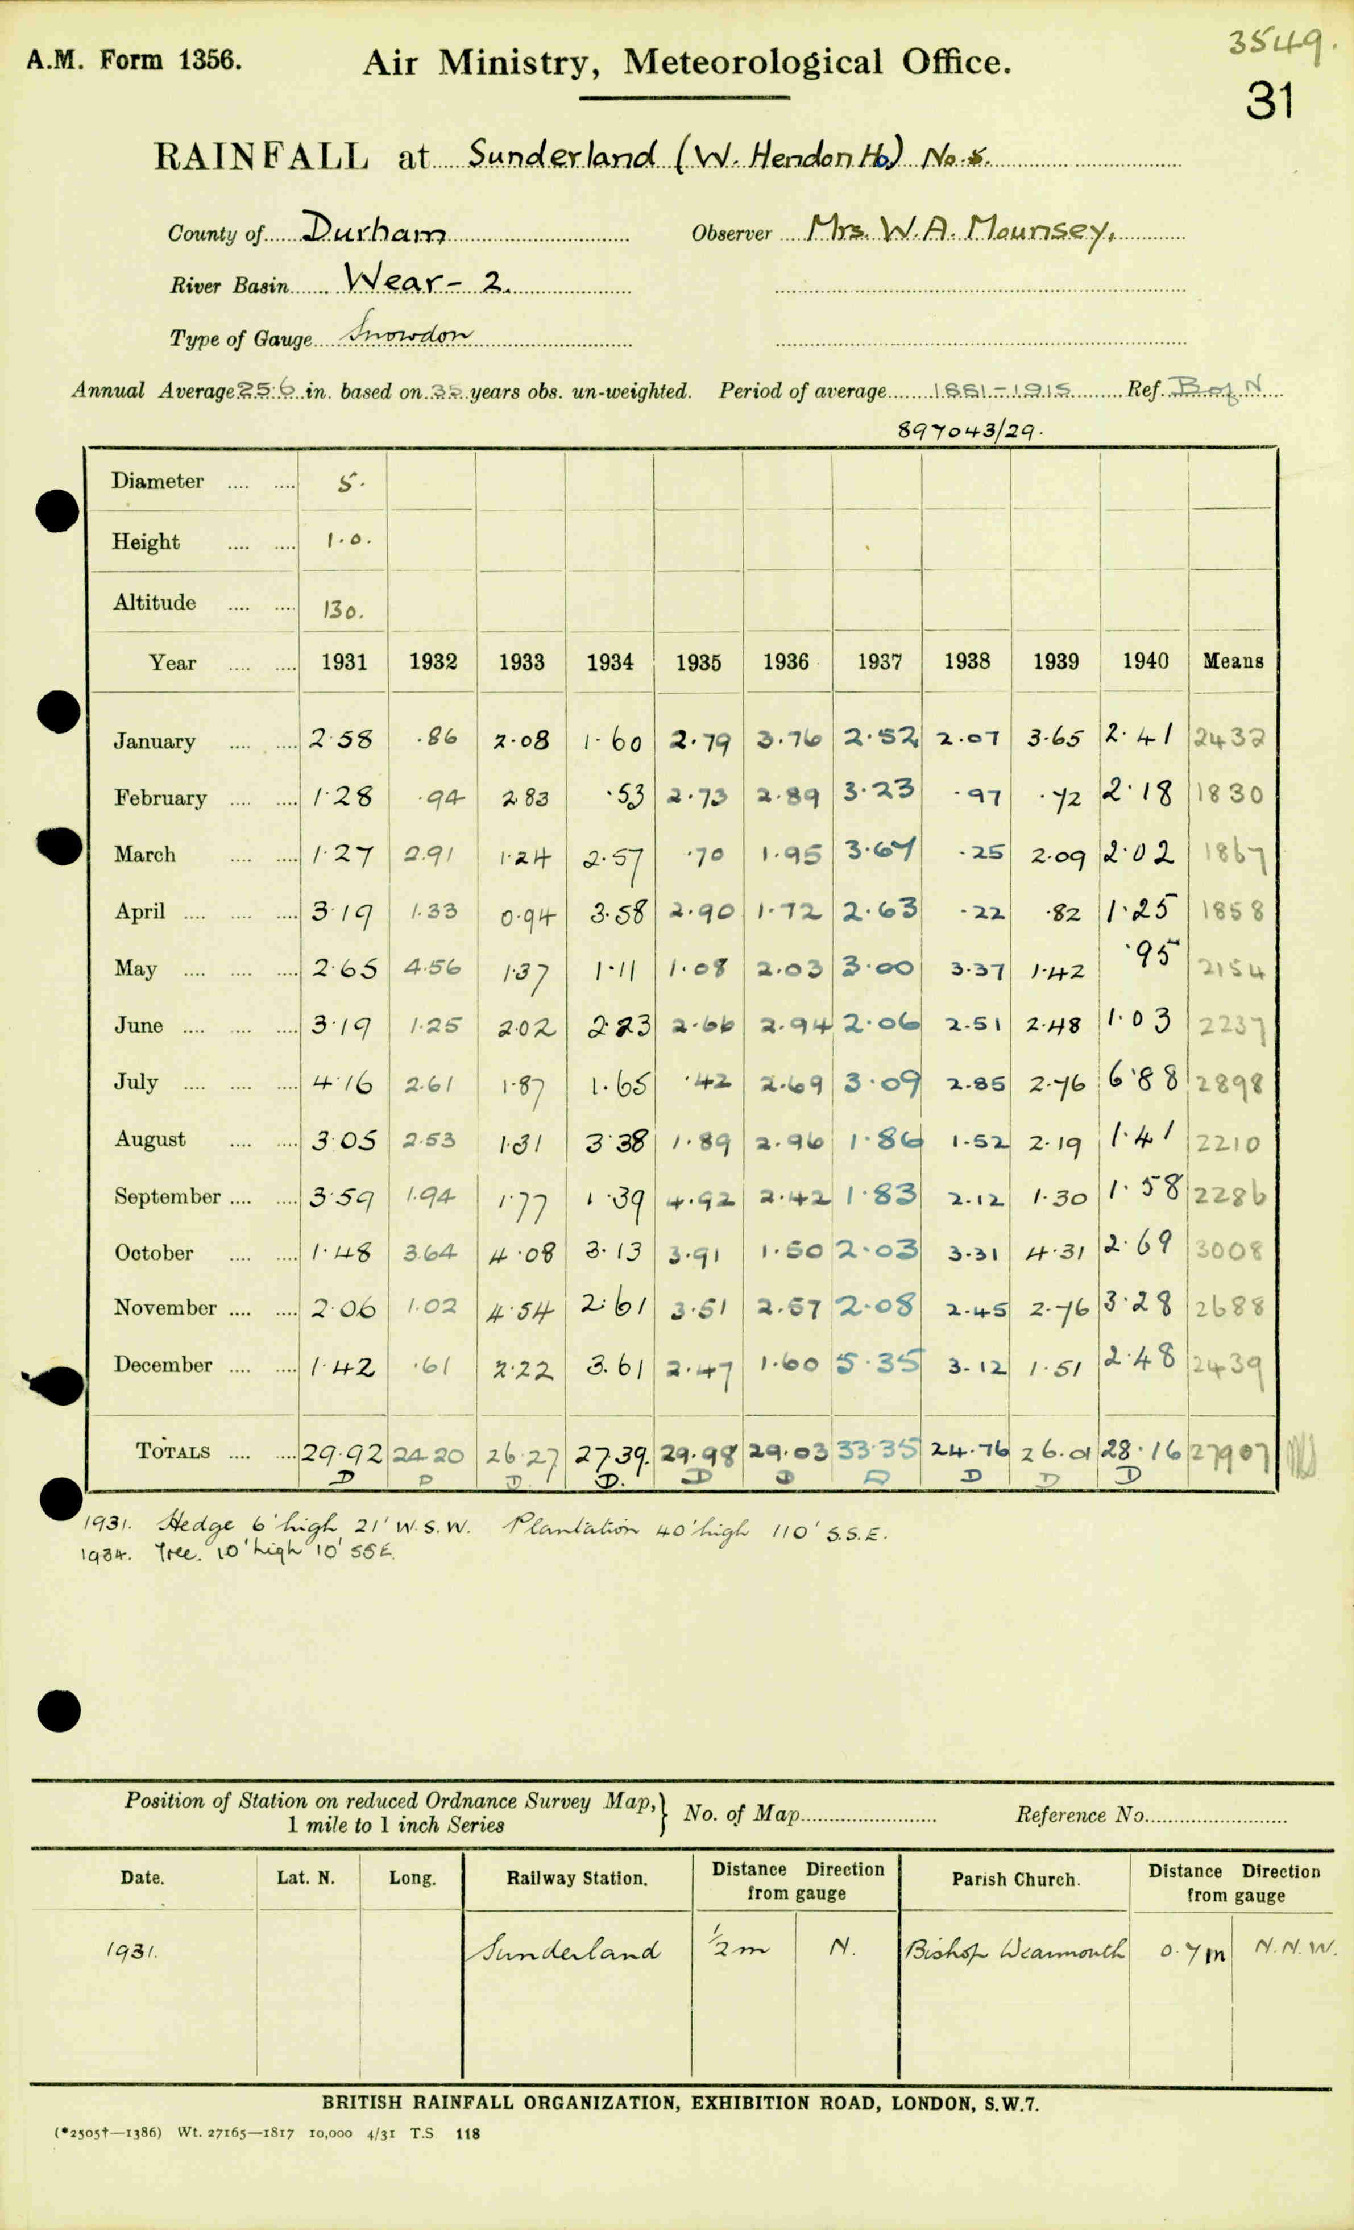 3549.
A.M. Form 1356. Air Ministry, Meteorological Office.
31
RAINFALL at Sunderland (W. Hendon Ho) No.
County of Durham Observer Mrs. W.A. Mounsey.
River Basin Wear - 2.
Type of Gauge Snowdon
Annual Average 25.6 in. based on 35 years obs. un-weighted. Period of average 1881-1915 Ref. B of N
897043/29.
Diameter .... .... 5.
Height .... .... 1.0.
Altitude .... .... 130.
Year .... .... 1931 1932 1933 1934 1935 1936 1937 1938 1939 1940 Means
January .... .... 2.58 .86 2.08 1.60 2.79 3.76 2.52 2.07 3.65 2.41 2432
February .... .... 1.28 .94 2.83 .53 2.73 2.89 3.23 .97 .72 2.18 1830
March .... .... 1.27 2.91 1.24 2.57 .70 1.95 3.67 .25 2.09 2.02 1867
April .... .... .... 3.19 1.33 0.94 3.58 2.90 1.72 2.63 .22 .82 1.25 1858
May .... .... .... 2.65 4.56 1.37 1.11 1.08 2.03 3.00 3.37 1.42 .95 2154
June .... .... .... 3.19 1.25 2.02 2.23 2.66 2.94 2.06 2.51 2.48 1.03 2237
July .... .... .... 4.16 2.61 1.87 1.65 .42 2.69 3.09 2.85 2.76 6.88 2898
August .... .... 3.05 2.53 1.31 3.38 1.89 2.96 1.86 1.52 2.19 1.41 2210
September .... .... 3.59 1.94 1.77 1.39 4.92 2.42 1.83 2.12 1.30 1.58 2286
October .... .... 1.48 3.64 4.08 3.13 3.91 1.50 2.03 3.31 4.31 2.69 3008
November .... .... 2.06 1.02 4.54 2.61 3.51 2.57 2.08 2.45 2.76 3.28 2688
December .... .... 1.42 .61 2.22 3.61 2.47 1.60 5.35 3.12 1.51 2.48 2439
TOTALS .... .... 29.92 24.20 26.27 27.39. 29.98 29.03 33.35 24.76 26.01 28.16 27907
D D D D. D D D D D D
1931. Hedge 6' high 21' W.S.W. Plantation 40' high 110' S.S.E.
1934. Tree. 10' high 10' SSE.
Position of Station on reduced Ordnance Survey Map, } No. of Map Reference No.
1 mile to 1 inch Series
Date. Lat. N. Long. Railway Station. Distance Direction from gauge Parish Church. Distance Direction from gauge
1931. Sunderland ½m N. Bishop Wearmouth 0.7m N.N.W.
BRITISH RAINFALL ORGANIZATION, EXHIBITION ROAD, LONDON, S.W.7.
(*2505†—1386) Wt. 27165—1817 10,000 4/31 T.S 118